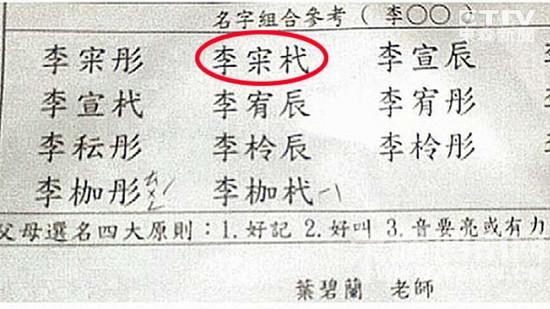 名字組合參考(李○○)
TTV
李彤 李杙 李宣辰
李宣杙 李宥辰 李宥彤
李耘彤 李柃辰 李柃彤
李枷彤 李枷杙
父母選名四大原則:1.好記 2.好叫 3.音要亮或有力
葉碧蘭 老師